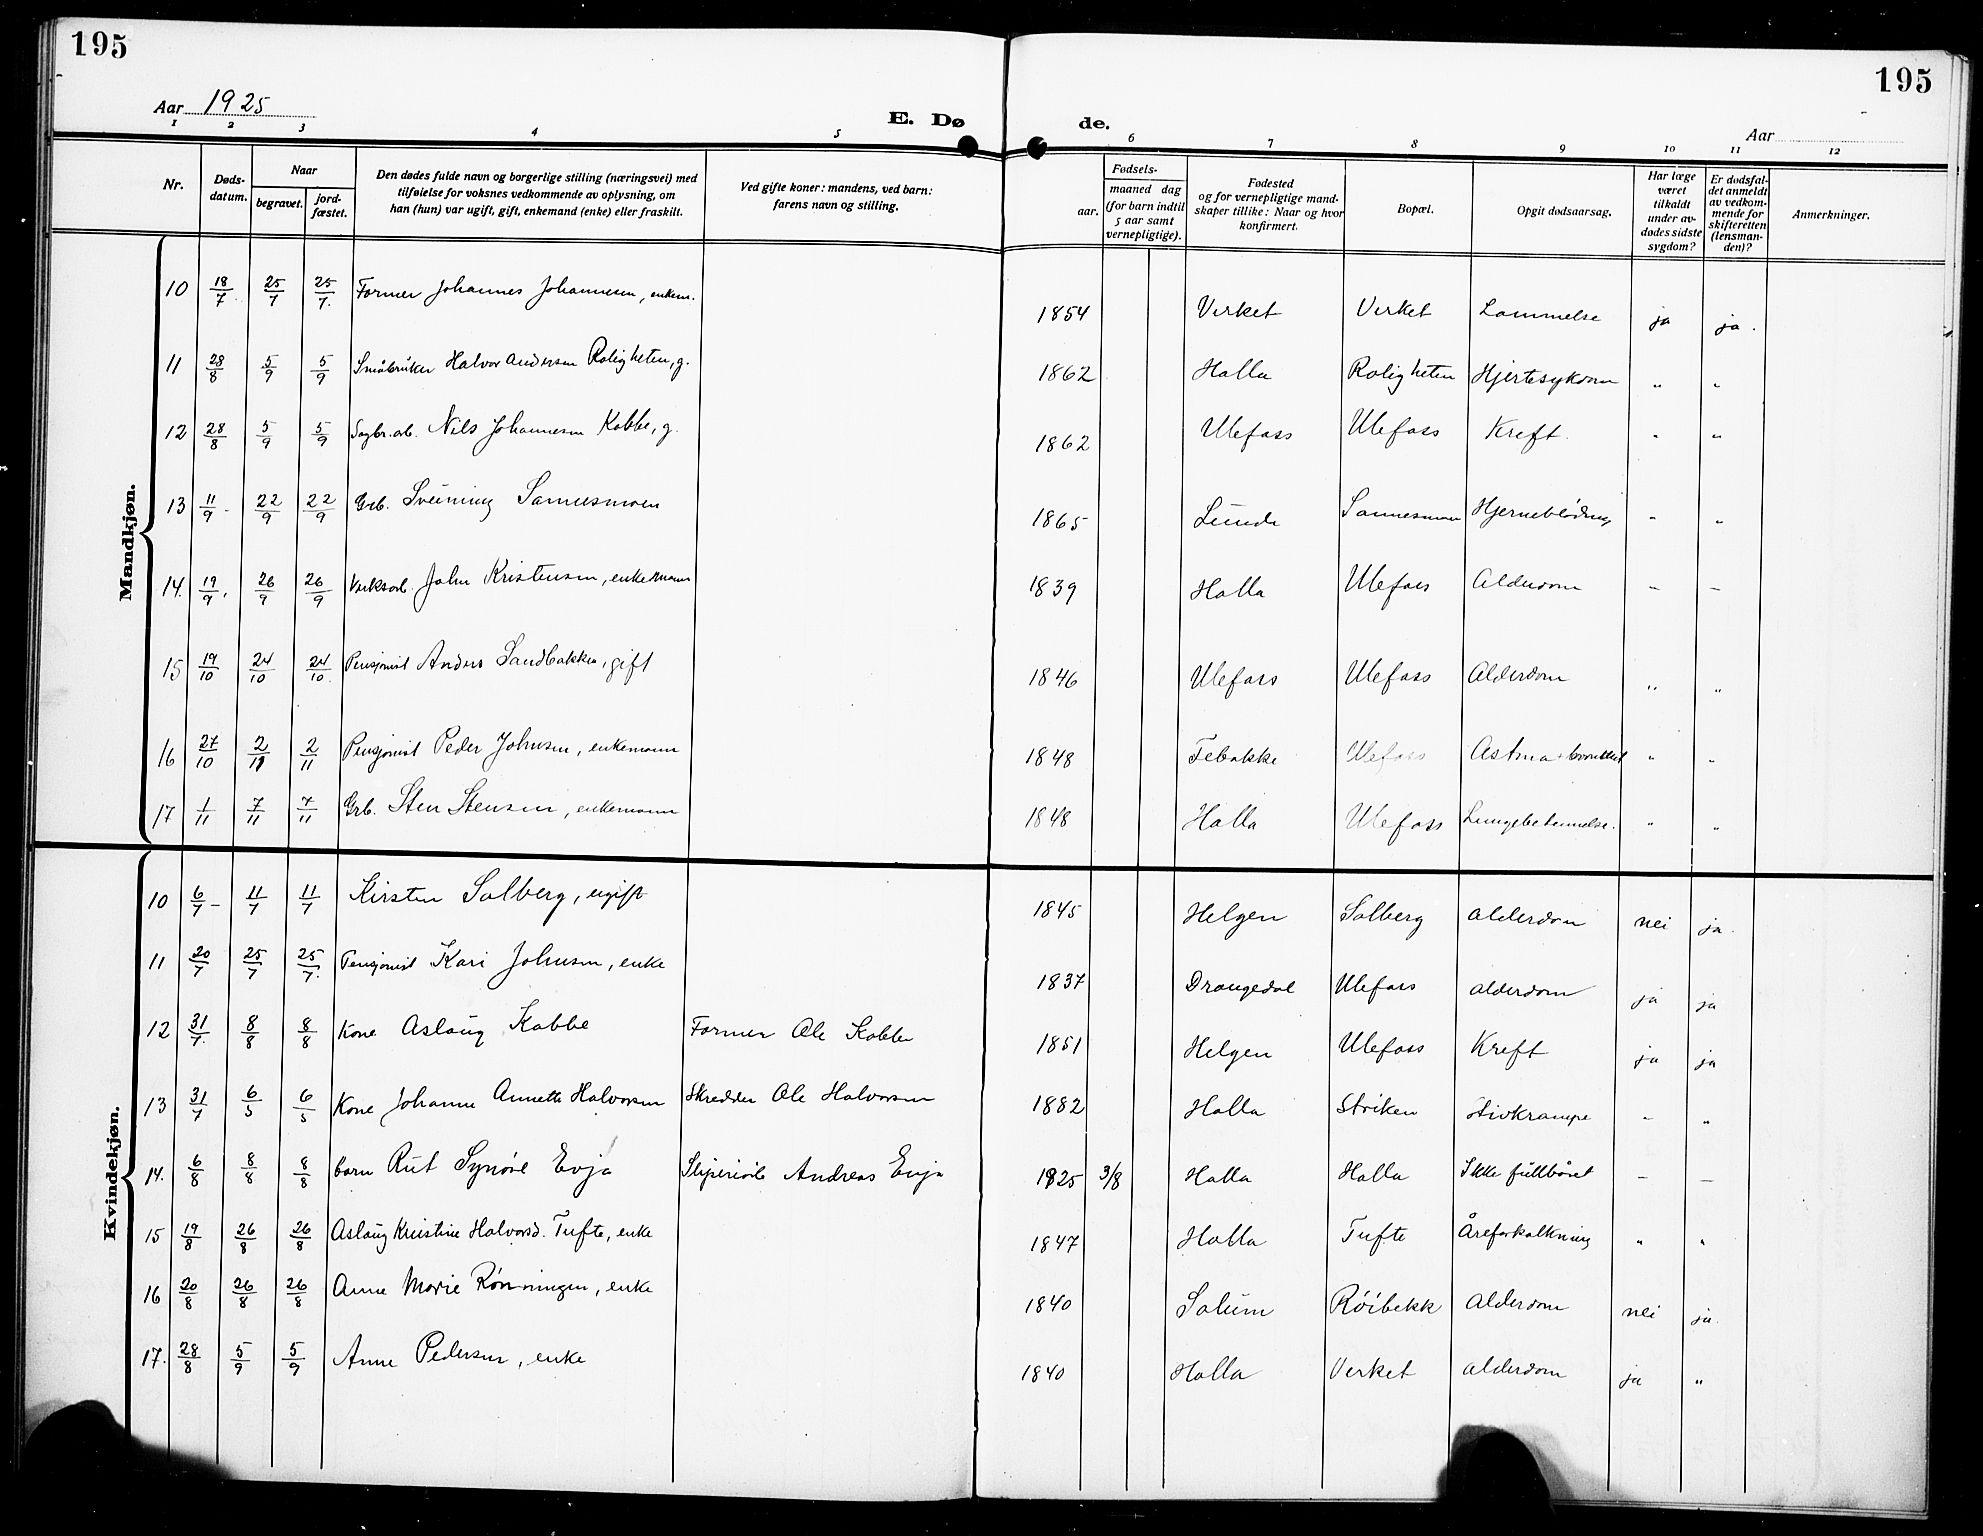 195
195
Aar 1925
E. Dø
de.
Aar
1 2 3 4 5 6 7 8 9 10 11 12
Nr.
Døds-
datum.
Naar
begravet.
jord-
fæstet.
Den dødes fulde navn og borgerlige stilling (næringsvei) med
tilføielse for voksnes vedkommende av oplysning, om
han (hun) var ugift, gift, enkemand (enke) eller fraskilt.
Ved gifte koner: mandens, ved barn:
farens navn og stilling.
Fødsels-
aar.
maaned dag
(for barn indtil
5 aar samt
vernepligtige).
Fødested
og for vernepligtige mand-
skaper tillike: Naar og hvor
konfirmert.
Bopæl.
Opgit dødsaarsag.
Har læge
været
tilkaldt
under av-
dødes sidste
sygdom?
Er dødsfal-
det anmeldt
av vedkom-
mende for
skifteretten
(lensman-
den)?
Anmerkninger.
Mandkjøn.
10 18/7 25/7 25/7. Former Johannes Johannesen, enkem. 1854 Verket Verket Lammelse ja ja.
11 28/8 5/9 5/9 Småbruker Halvor Andersen Roligheten, g. 1862 Holla Roligheten Hjertesykdom " "
12 28/8 5/9 5/9 Sagbr.arb. Nils Johannesen Kabbe, g. 1862 Ulefoss Ulefoss Kreft. " "
13 11/9 - 22/9 22/9 Grb. Sveinung Sannesmoen 1865 Lunde Sannesmoen Hjerneblødning " "
14. 19/9. 26/9 26/9 Verksarb. John Kristensen, enkemann 1839 Holla Ulefoss Alderdom — —
15 19/10 24/10 24/10. Pensjonist Anders Sandbakken, gift 1846 Ulefoss Ulefoss Alderdom " "
16 27/10 2/11 2/11 Pensjonist Peder Johnsen, enkemann 1848 Tebakke Ulefoss Astma + bronkit " "
17 1/11 7/11 7/11 Grb. Sten Stensen, enkemann 1848 Holla Ulefoss Lungebetennelse. " "
Kvindekjøn.
10 6/7 - 11/7 11/7 Kirsten Solberg, ugift 1845 Helgen Solberg Alderdom nei ja.
11 20/7 25/7 25/7. Pensjonist Kari Johnsen, enke 1837 Drangedal Ulefoss alderdom ja ja
12 31/7. 8/8 8/8 Kone Aslaug Kabbe Former Ole Kabbe 1851 Helgen Ulefoss Kreft ja ja
13 31/7 6/5 6/5 Kone Johanne Annette Halvorsen Skredder Ole Halvorsen 1882 Holla Striken Stivkrampe - "
14. 6/8 8/8 8/8 barn Rut Synøve Evja Sliperiarb Andreas Evja 1925 3/8 Holla Holla Ikke fullbåret — —
15 19/8 26/8 26/8 Aslaug Kristine Halvorsd. Tufte, enke 1847 Holla Tufte Åreforkalkning " "
16 20/8 26/8 26/8 Anne Marie Rønningen, enke 1840 Solum Røibekk Alderdom nei ja.
17. 28/8 5/9 5/9 Anne Pedersen, enke 1840 Holla Verket alderdom ja "